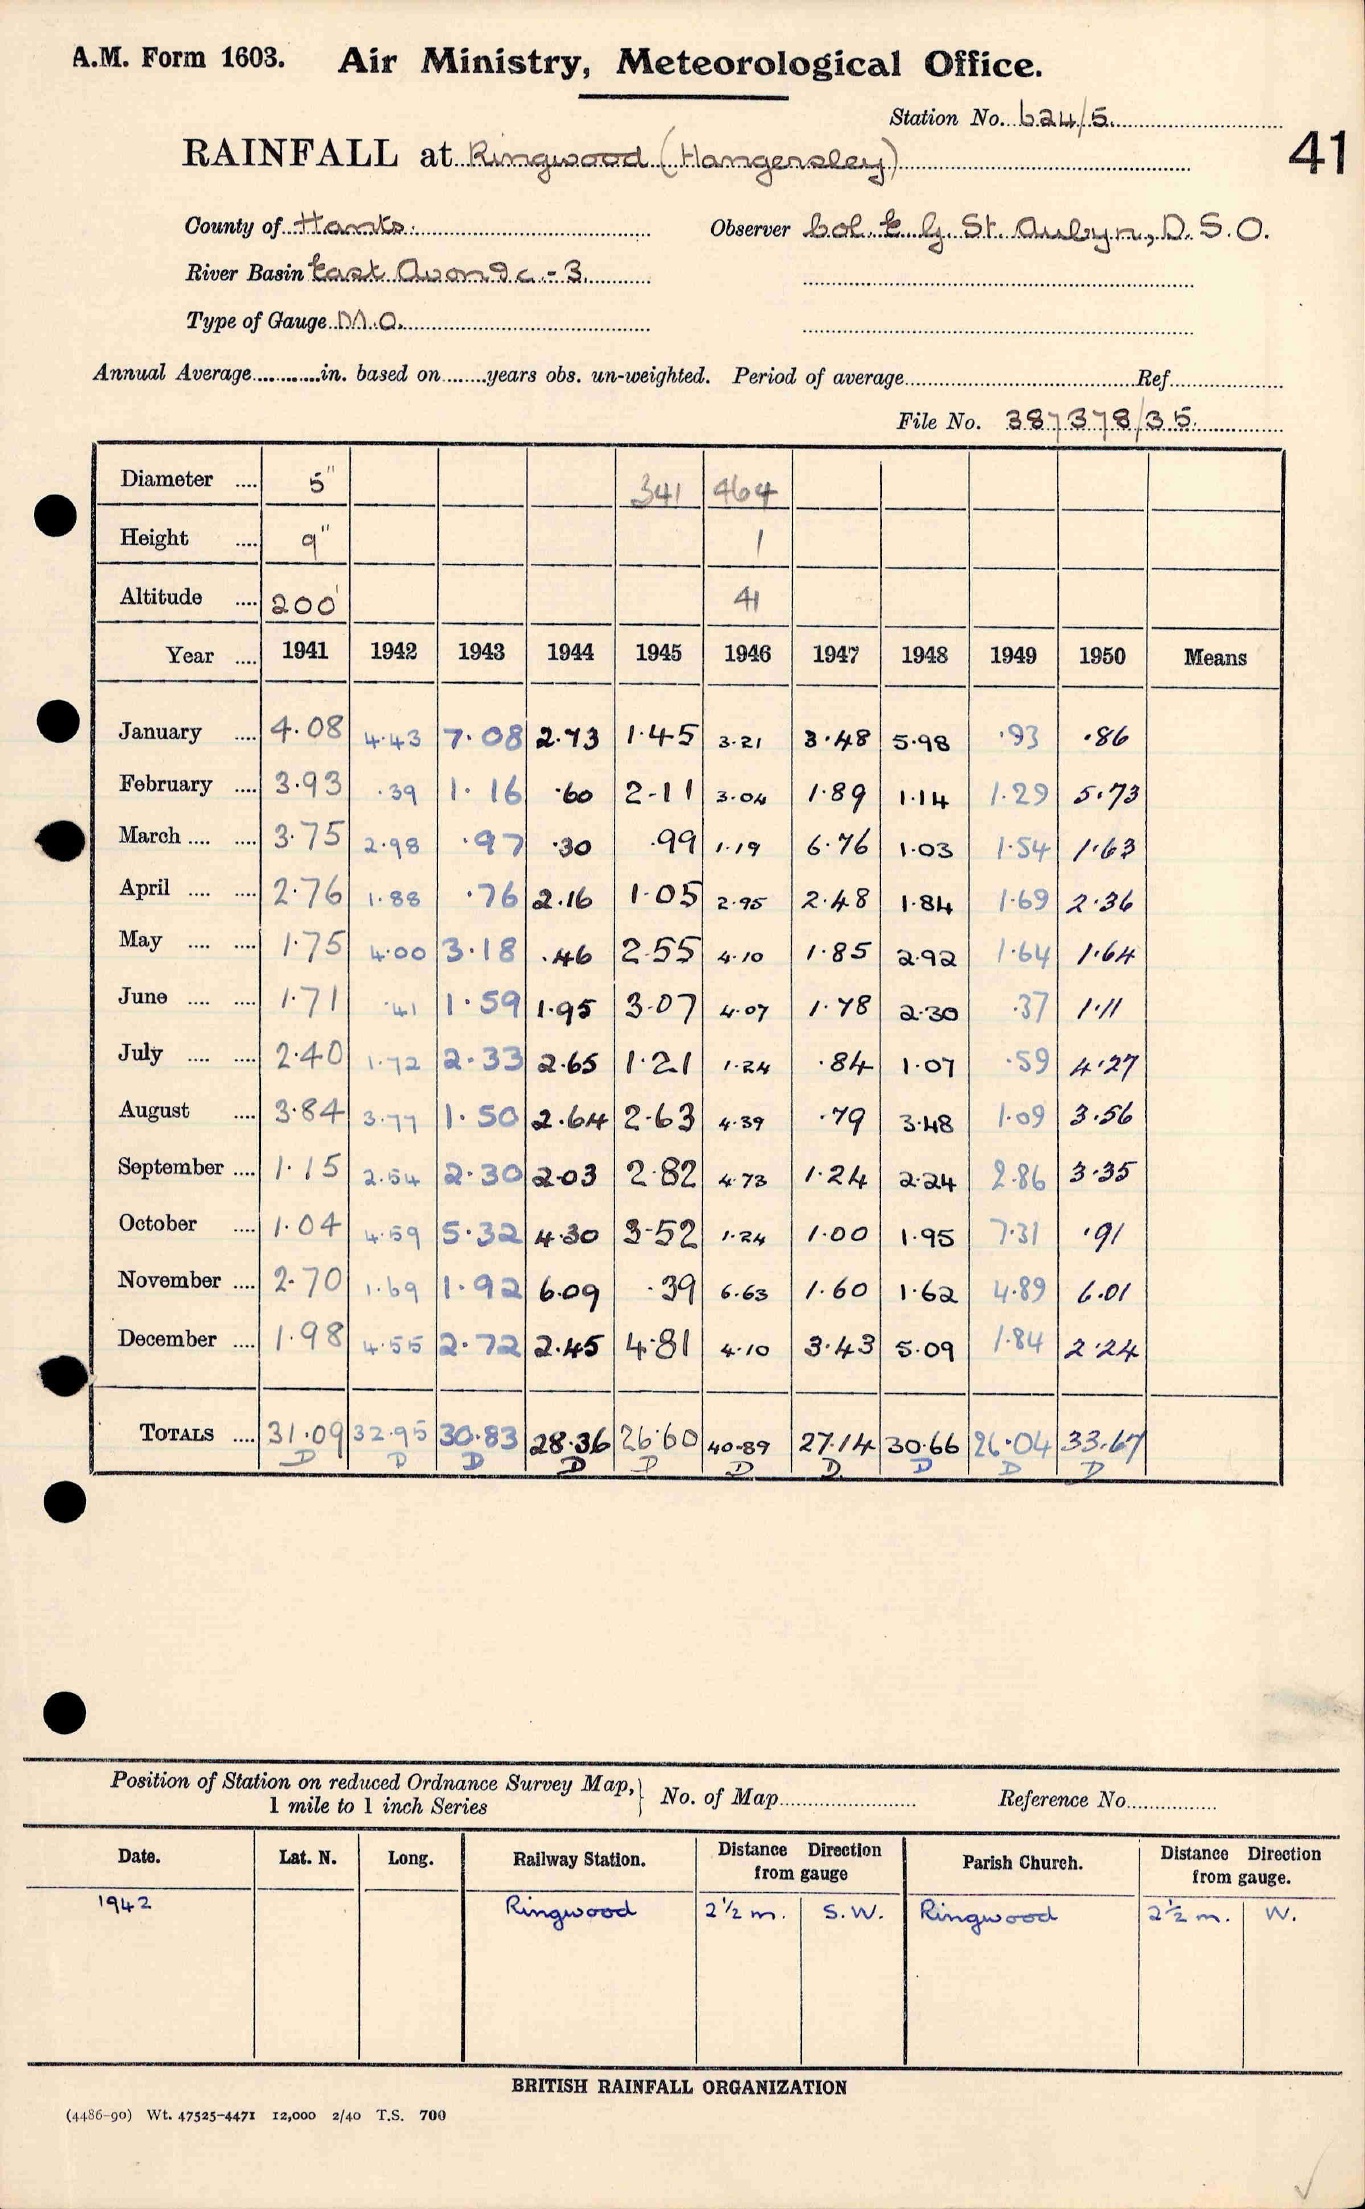 A.M. Form 1603. Air Ministry, Meteorological Office.
Station No. 624/5
RAINFALL at Ringwood (Hangersley) 41
County of Hants. Observer Col. E. G. St. Aubyn, D.S.O.
River Basin East Avon 9c-3
Type of Gauge M.O.
Annual Average............in. based on........years obs. un-weighted. Period of average........Ref........
File No. 387378/35
Diameter .... 5" 341 464
Height .... 9" 1
Altitude .... 200' 41
Year .... 1941 1942 1943 1944 1945 1946 1947 1948 1949 1950 Means
January .... 4.08 4.43 7.08 2.73 1.45 3.21 3.48 5.98 .93 .86
February .... 3.93 .39 1.16 .60 2.11 3.04 1.89 1.14 1.29 5.73
March .... .... 3.75 2.98 .97 .30 .99 1.19 6.76 1.03 1.54 1.63
April .... .... 2.76 1.88 .76 2.16 1.05 2.95 2.48 1.84 1.69 2.36
May .... .... 1.75 4.00 3.18 .46 2.55 4.10 1.85 2.92 1.64 1.64
June .... .... 1.71 .41 1.59 1.95 3.07 4.07 1.78 2.30 .37 1.11
July .... .... 2.40 1.72 2.33 2.65 1.21 1.24 .84 1.07 .59 4.27
August .... 3.84 3.77 1.50 2.64 2.63 4.39 .79 3.48 1.09 3.56
September .... 1.15 2.54 2.30 2.03 2.82 4.73 1.24 2.24 2.86 3.35
October .... 1.04 4.59 5.32 4.30 3.52 1.24 1.00 1.95 7.31 .91
November .... 2.70 1.69 1.92 6.09 .39 6.63 1.60 1.62 4.89 6.01
December .... 1.98 4.55 2.72 2.45 4.81 4.10 3.43 5.09 1.84 2.24
TOTALS .... 31.09 32.95 30.83 28.36 26.60 40.89 27.14 30.66 26.04 33.67
D D D D D D D D D D
Position of Station on reduced Ordnance Survey Map, } No. of Map........ Reference No........
1 mile to 1 inch Series
Date. Lat. N. Long. Railway Station. Distance Direction from gauge Parish Church. Distance Direction from gauge.
1942 Ringwood 2½ m. S.W. Ringwood 2½ m. W.
BRITISH RAINFALL ORGANIZATION
(4486-90) Wt. 47525-4471 12,000 2/40 T.S. 700